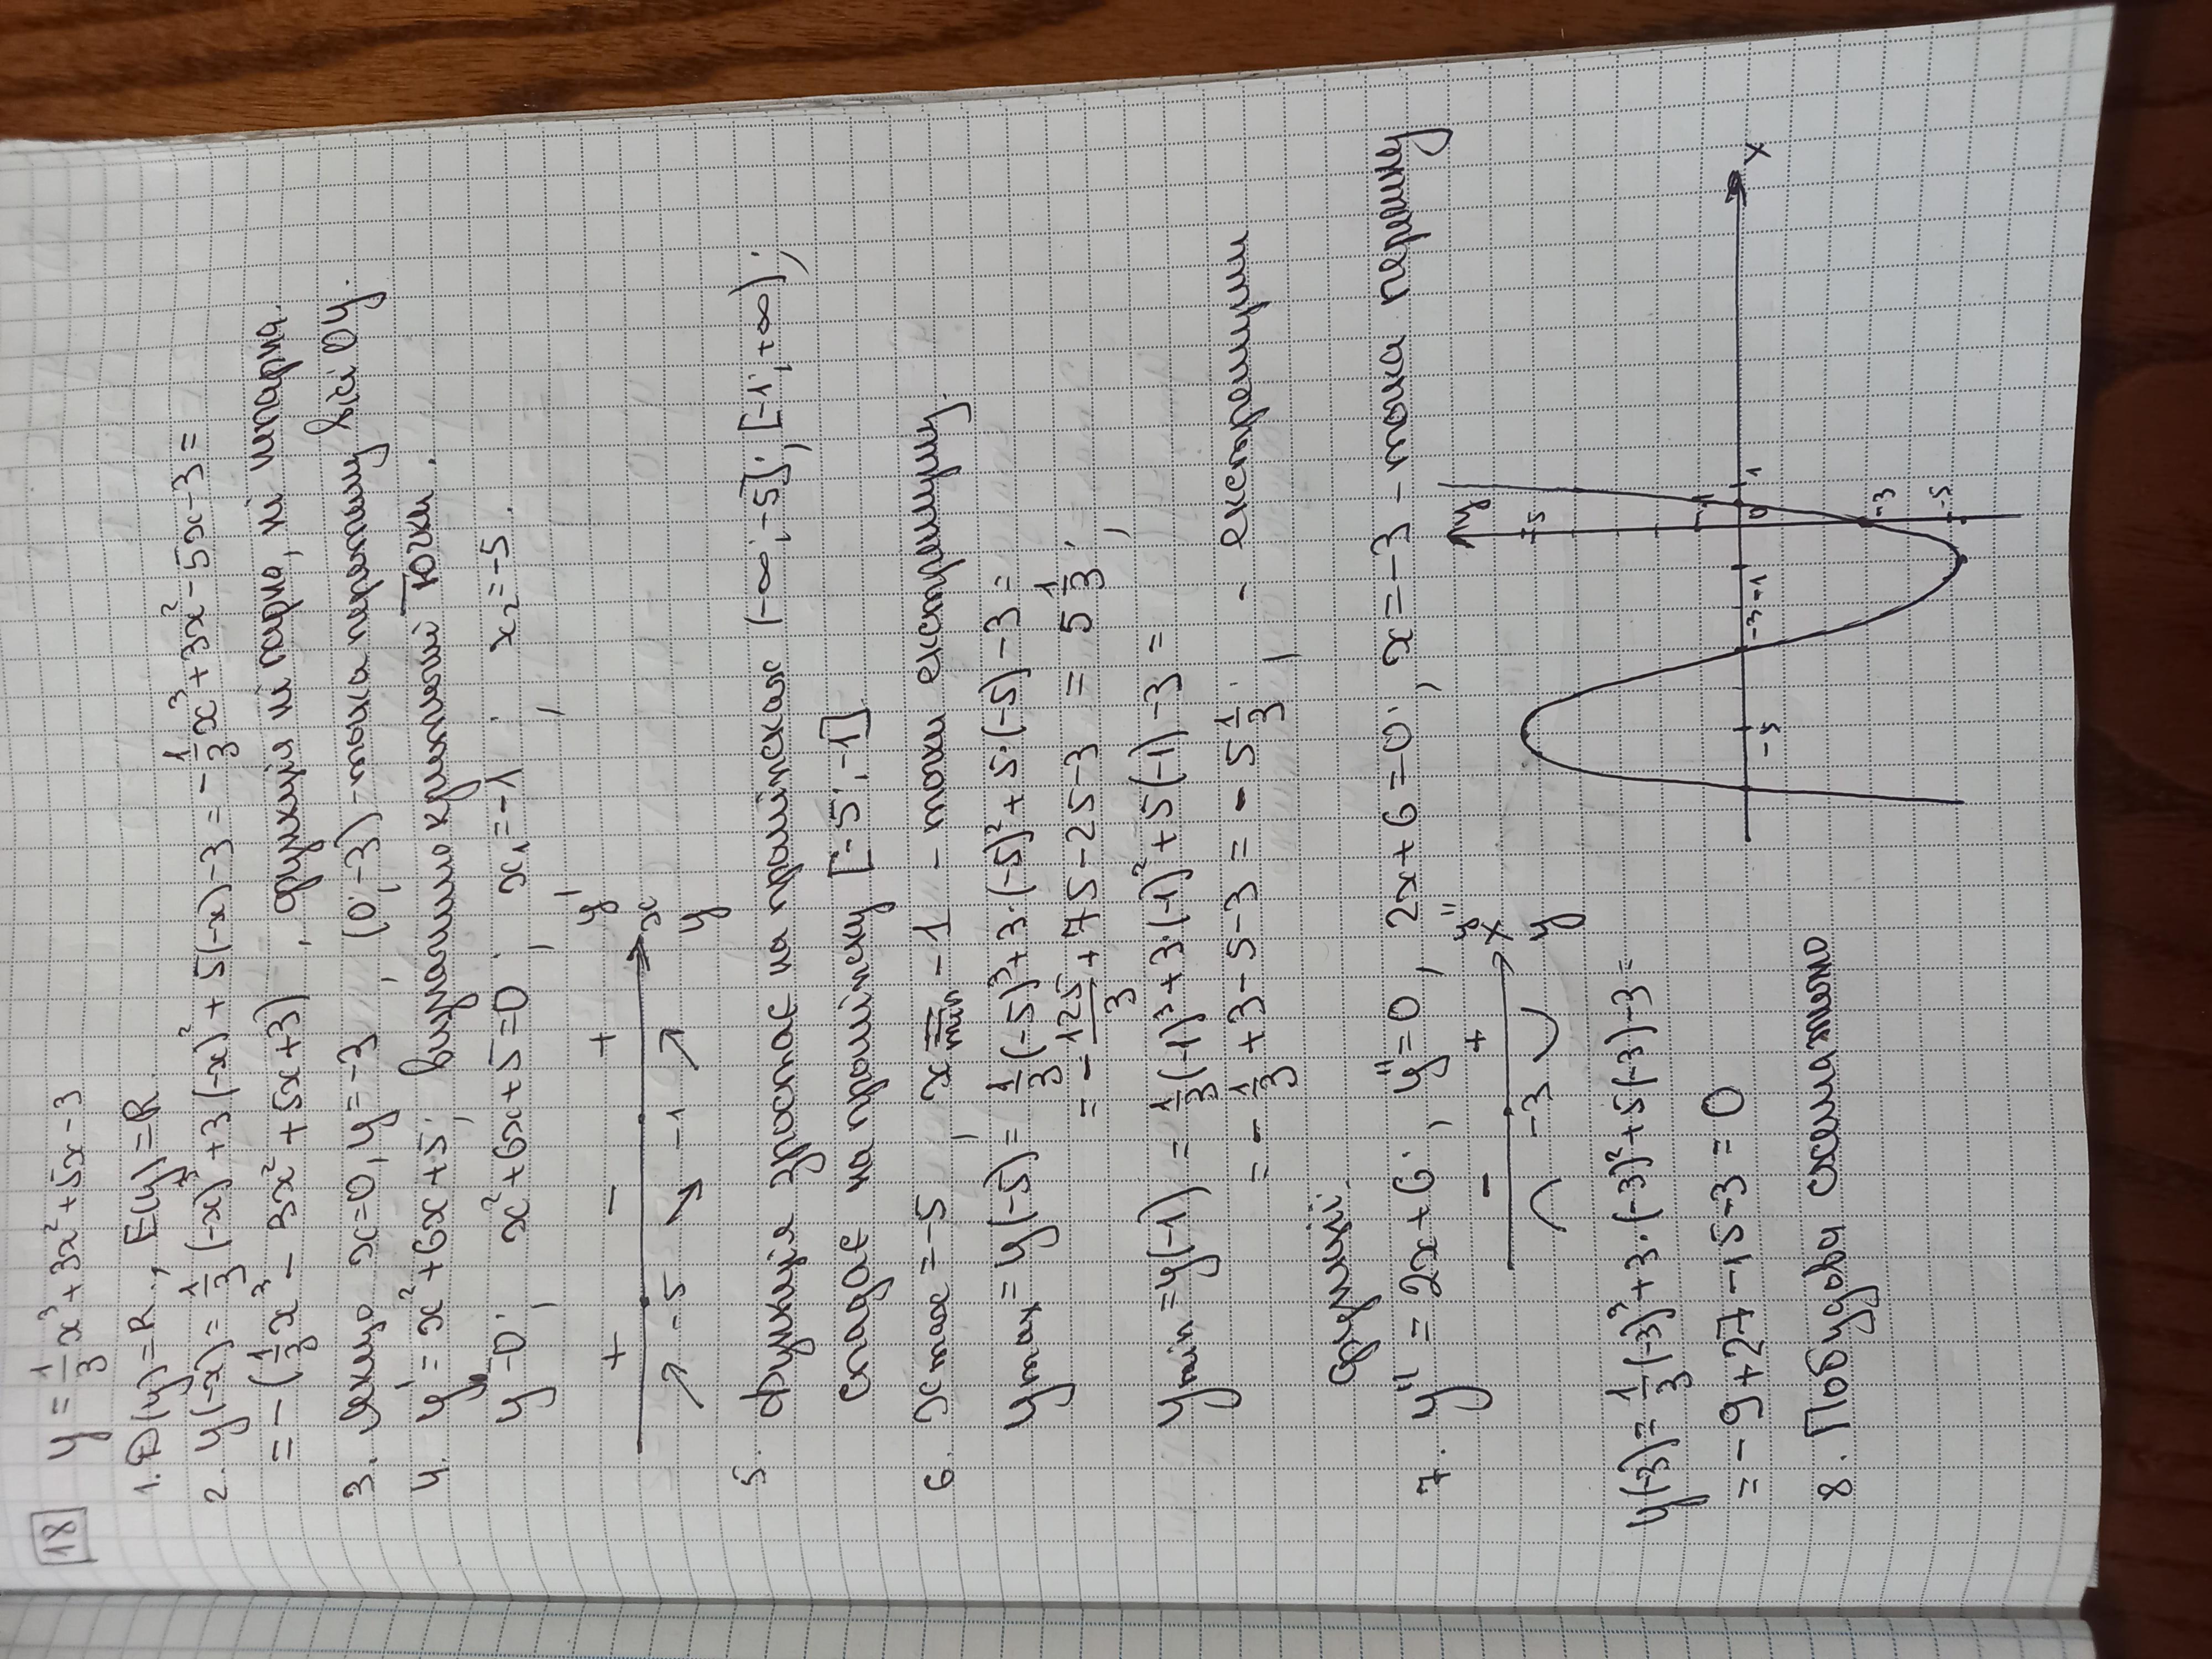 18
y = 1/3 x³ + 3x² + 5x - 3
1. D(y) = R; E(y) = R.
2. y(-x) = 1/3 (-x)³ + 3(-x)² + 5(-x) - 3 = -1/3 x³ + 3x² - 5x - 3 =
= -(1/3 x³ - 3x² + 5x + 3), функція ні парна, ні непарна.
3. Якщо x = 0, y = -3, (0; -3) - точка перетину вісі OY.
4. y' = x² + 6x + 5; визначимо критичні точки.
y' = 0; x² + 6x + 5 = 0; x₁ = -1; x₂ = -5.
+ - + y'
-5 -1 x
↗ ↘ ↗ y
5. Функція зростає на проміжках (-∞; -5]; [-1; +∞);
спадає на проміжку [-5; -1].
6. x max = -5, x min = -1 - точки екстремуму.
y max = y(-5) = 1/3 (-5)³ + 3·(-5)² + 5·(-5) - 3 =
= -125/3 + 75 - 25 - 3 = 5 1/3;
y min = y(-1) = 1/3 (-1)³ + 3·(-1)² + 5(-1) - 3 =
= -1/3 + 3 - 5 - 3 = -5 1/3; - екстремуми
функції.
7. y'' = 2x + 6; y'' = 0, 2x + 6 = 0; x = -3 - точка перегину
- + y''
-3 x
⌒ ⌣ y
y(-3) = 1/3 (-3)³ + 3·(-3)² + 5(-3) - 3 =
= -9 + 27 - 15 - 3 = 0
8. Побудова схематично
y
5
1
-5 -3 -1 0 1 x
-3
-5